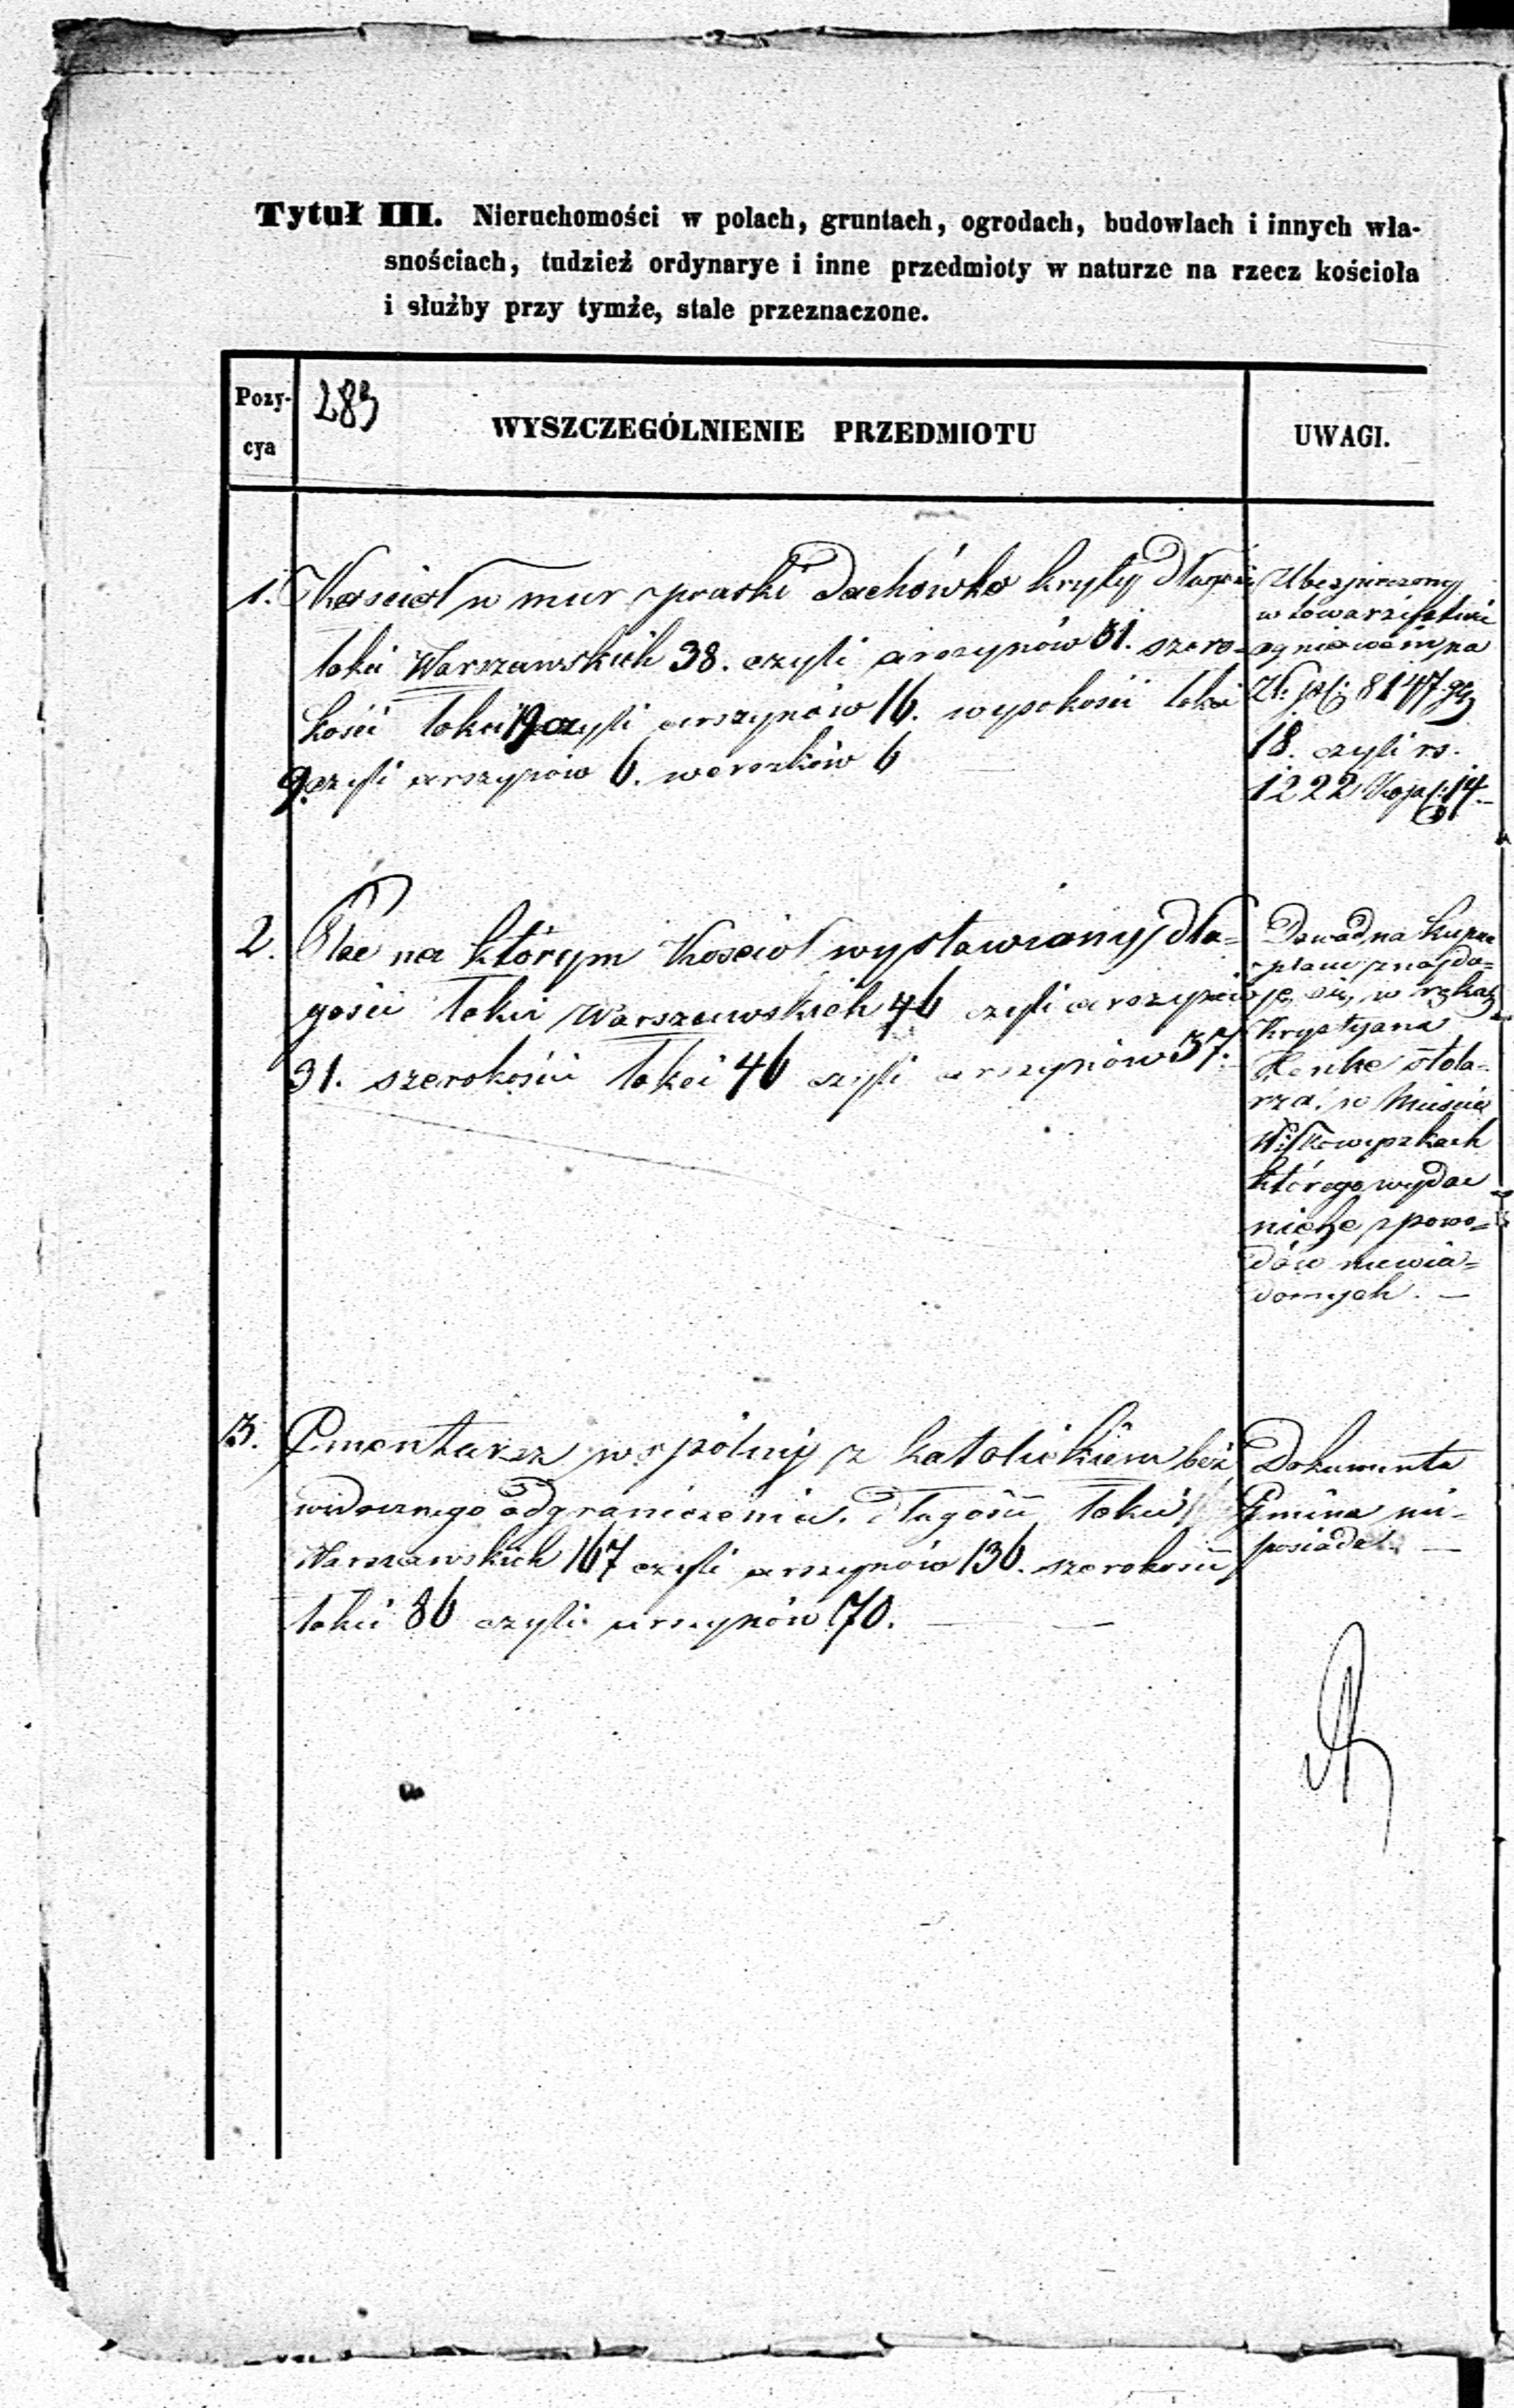 Tytuł III. Nieruchomości w polach, gruntach, ogrodach, budowlach i innych wła-
snościach, tudzież ordynarye i inne przedmioty w naturze na rzecz kościoła
i służby przy tymże, stale przeznaczone.
Pozy-
cya
283
WYSZCZEGÓLNIENIE PRZEDMIOTU
UWAGI.
1. Kościoł w mur pruski Dachówką kryty Długości
łokci Warszawskich 38. czyli arszynów 31. szero-
kości łokci 19 czyli arszynów 16. wysokości łokci
9. czyli arszynów 6. werszków 6
Ubezpieczony
w towarzystwie
ogniowem na
Zł: pol: 8147 gr
18. czyli rs.
1222 Kop: 14. –
2. Plac na którym Kościoł wystawiony dłu=
gości łokci Warszawskich 46 czyli arszynów
31. szerokości łokci 46 czyli arszynów 37. –
Dowód na kupno
placu znajdu=
je się w rękach
Krystyana
Henke stola=
rza, w Mieście
Wiłkowyszkach
którego wydać
niechce z powo=
dów niewia=
domych. –
3. Cmentarz wspólny z katolickiem bez
widocznego odgraniczenia. Długości łokci
Warszawskich 167 czyli arszynów 136. szerokości
łokci 86 czyli arszynów 70. – –
Dokumenta
Gmina nie-
posiada. –